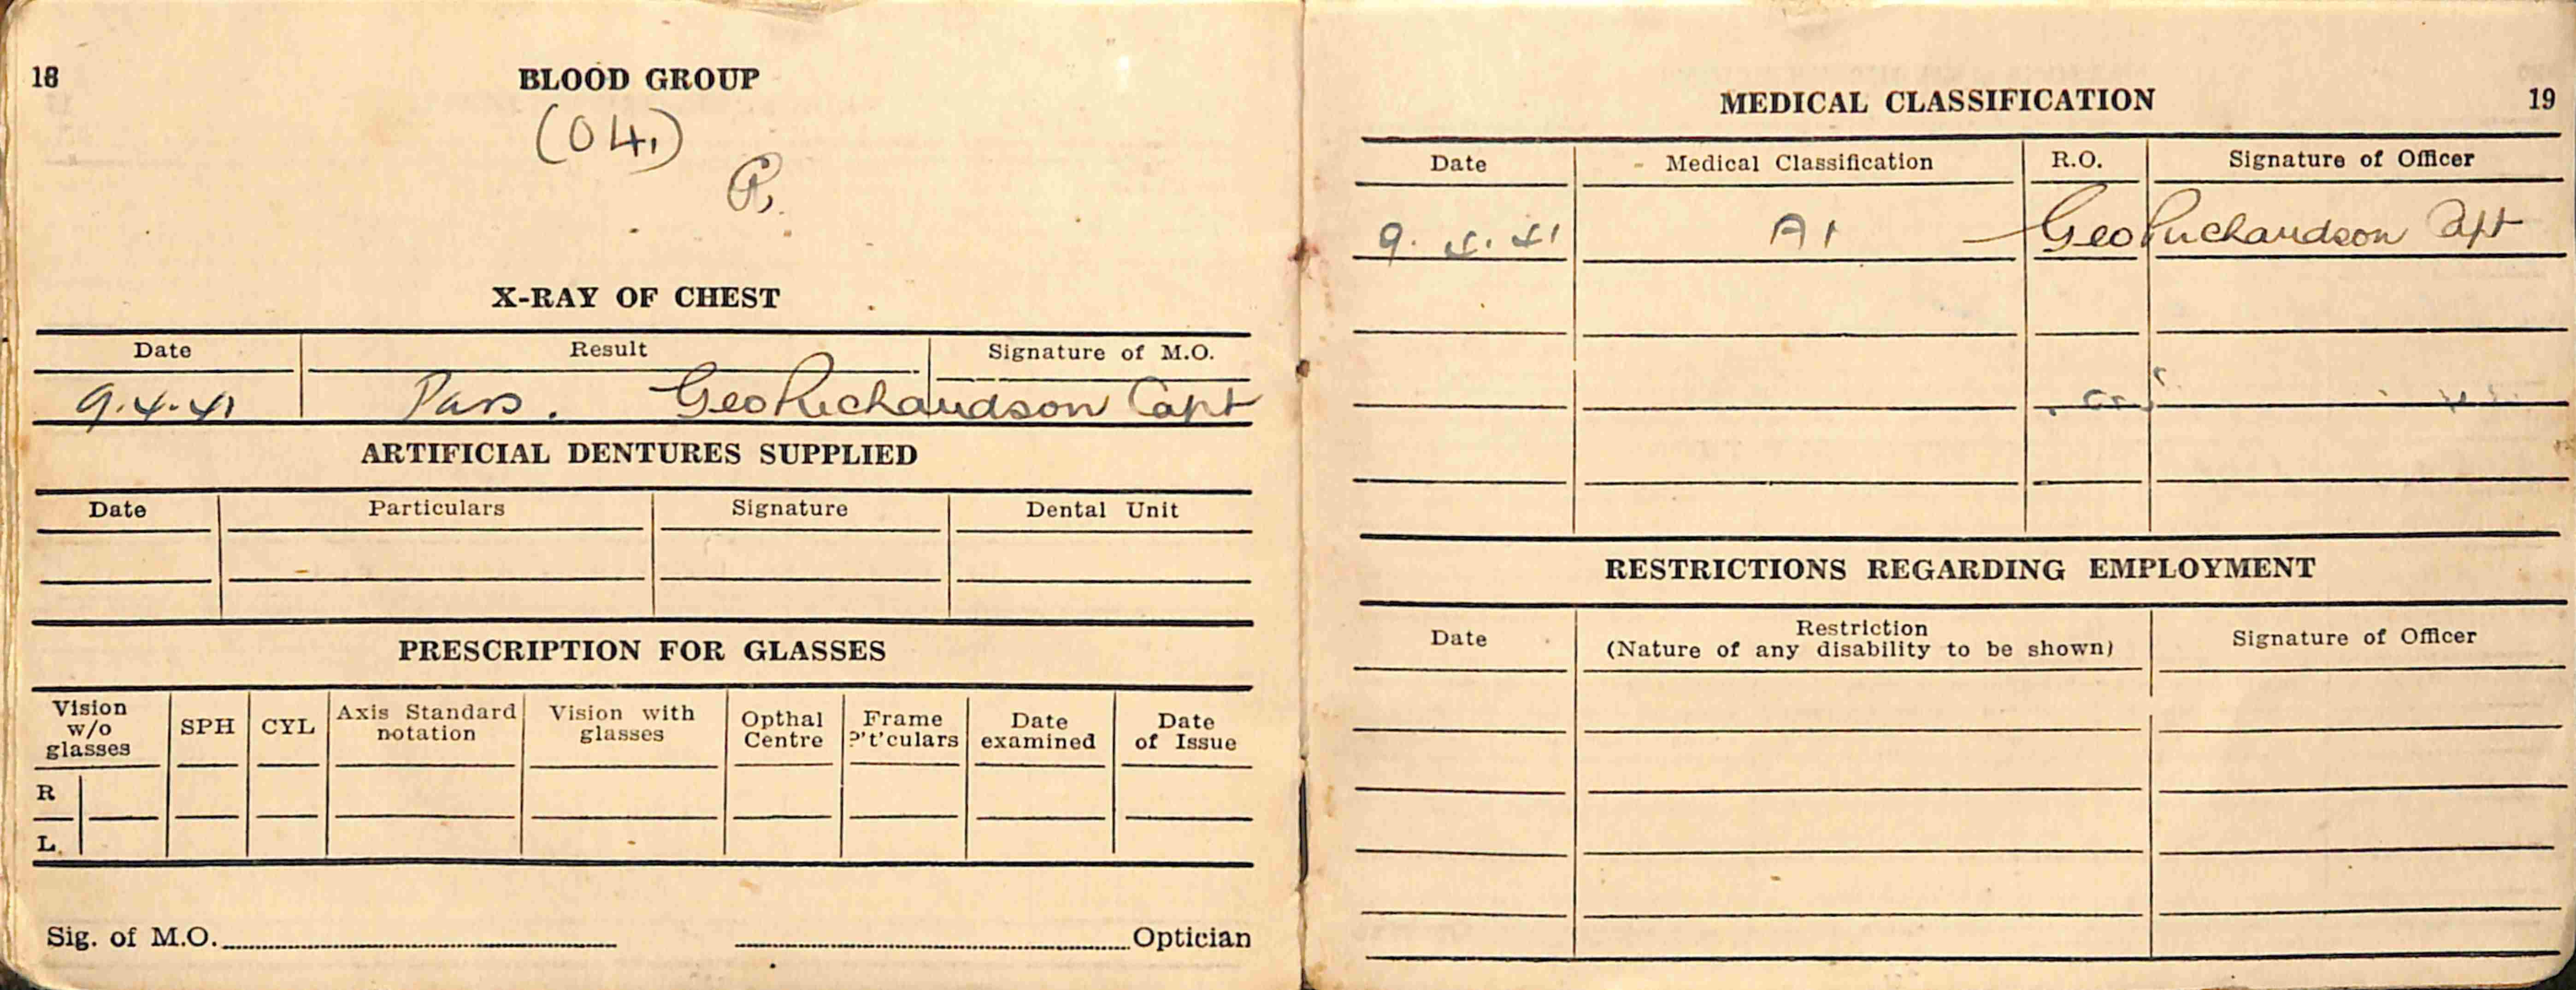 18
BLOOD GROUP
(O 4.)
P.
X-RAY OF CHEST
Date Result Signature of M.O.
9.4.41 Pass. Geo Richardson Capt
ARTIFICIAL DENTURES SUPPLIED
Date Particulars Signature Dental Unit
PRESCRIPTION FOR GLASSES
Vision w/o glasses SPH CYL Axis Standard notation Vision with glasses Opthal Centre Frame P't'culars Date examined Date of Issue
R
L.
Sig. of M.O. Optician
MEDICAL CLASSIFICATION 19
Date Medical Classification R.O. Signature of Officer
9. 4. 41 A1 Geo Richardson Capt
RESTRICTIONS REGARDING EMPLOYMENT
Date Restriction (Nature of any disability to be shown) Signature of Officer